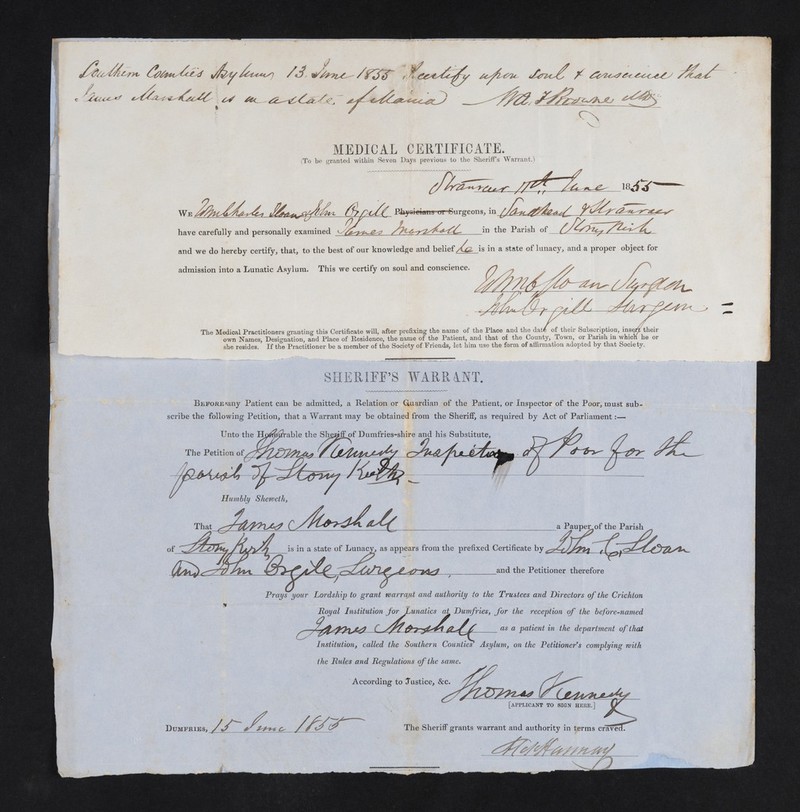 Southern Counties Asylum 13 June 1855 I certify upon soul & conscience that
James Marshall is in a state of Mania W. A. F. Browne
MEDICAL CERTIFICATE.
(To be granted within Seven Days previous to the Sheriff's Warrant.)
Stranraer 11th June 1855
WE Wm Charles Sloan & John Orgill Physicians or Surgeons, in Sandhead & Stranraer
have carefully and personally examined James Marshall in the Parish of Stony Kirk
and we do hereby certify, that, to the best of our knowledge and belief he is in a state of lunacy, and a proper object for
admission into a Lunatic Asylum. This we certify on soul and conscience.
Wm C Sloan Surgeon
John Orgill Surgeon
The Medical Practitioners granting this Certificate will, after prefixing the name of the Place and the date of their Subscription, insert their
own Names, Designation, and Place of Residence, the name of the Patient, and that of the County, Town, or Parish in which he or
she resides. If the Practitioner be a member of the Society of Friends, let him use the form of affirmation adopted by that Society.
SHERIFF'S WARRANT.
BEFORE any Patient can be admitted, a Relation or Guardian of the Patient, or Inspector of the Poor, must sub-
scribe the following Petition, that a Warrant may be obtained from the Sheriff, as required by Act of Parliament:—
Unto the Honourable the Sheriff of Dumfries-shire and his Substitute,
The Petition of Thomas Kennedy Inspector of Poor for the
parish of Stony Kirk
Humbly Sheweth,
That James Marshall a Pauper of the Parish
of Stony Kirk is in a state of Lunacy, as appears from the prefixed Certificate by John C. Sloan
and John Orgile, Surgeons. and the Petitioner therefore
Prays your Lordship to grant warrant and authority to the Trustees and Directors of the Crichton
Royal Institution for Lunatics at Dumfries, for the reception of the before-named
James Marshall as a patient in the department of that
Institution, called the Southern Counties' Asylum, on the Petitioner's complying with
the Rules and Regulations of the same.
According to Justice, &c.
Thomas Kennedy
[APPLICANT TO SIGN HERE.]
DUMFRIES, 15 June 1855 The Sheriff grants warrant and authority in terms craved.